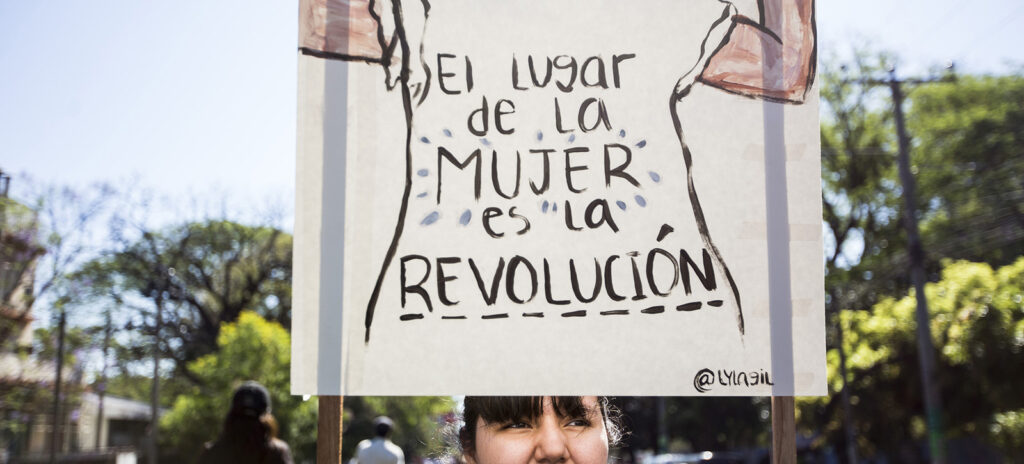 El lugar
de la
MUJER
es la
REVOLUCIÓN
@LYLAGIL